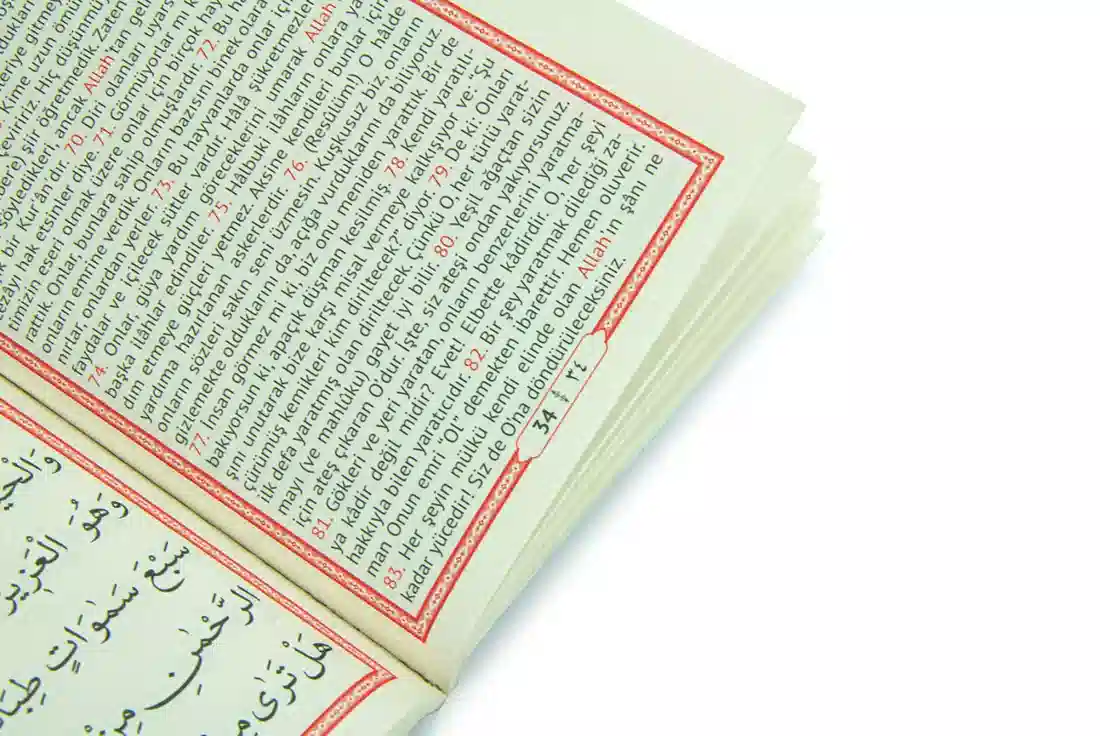 çeviririz. Hiç düşünmü
öğretmedik. Zaten
söyledikleri, ancak Allah'tan gel
Kur'ân'dır. 70. Diri olanları uyars
hak etsinler diye. 71. Görmüyorlar
imizin eseri olmak üzere onlar için birçok hay
rattık. Onlar, bunlara sahip olmuşlardır. 72. Bu
onların emrine verdik. Onların bazısını binek olara
nırlar, onlardan yerler. 73. Bu hayvanlarda onlar içi
faydalar ve içilecek sütler vardır. Hâlâ şükretmezler
74. Onlar, güya yardım göreceklerini umarak Allah
başka ilâhlar edindiler. 75. Halbuki ilâhların onlara ya
dım etmeye güçleri yetmez. Aksine kendileri bunlar için
yardıma hazırlanan askerlerdir. 76. (Resûlüm!) O hâlde
onların sözleri sakın seni üzmesin. Kuşkusuz biz, onların
gizlemekte olduklarını da, açığa vurduklarını da biliyoruz.
77. İnsan görmez mi ki, biz onu meniden yarattık. Bir de
bakıyorsun ki apaçık düşman kesilmiş. 78. Kendi yaratılı-
şını unutarak bize karşı misal vermeye kalkışıyor ve: "Şu
çürümüş kemikleri kim diriltecek?" diyor. 79. De ki: Onları
ilk defa yaratmış olan diriltecek. Çünkü O, her türlü yarat-
mayı (ve mahlûku) gayet iyi bilir. 80. Yeşil ağaçtan sizin
için ateş çıkaran O'dur. İşte, siz ateşi ondan yakıyorsunuz.
81. Gökleri ve yeri yaratan, onların benzerlerini yaratma-
ya kâdir değil midir? Evet! Elbette kâdirdir. O, her şeyi
hakkıyla bilen yaratıcıdır. 82. Bir şey yaratmak dilediği za-
man Onun emri "Ol" demekten ibarettir. Hemen oluverir.
83. Her şeyin mülkü kendi elinde olan Allah'ın şânı ne
kadar yücedir! Siz de Ona döndürüleceksiniz.
34 ٣٤
وَهُوَ الْعَزِيزُ
سَبْعَ سَمٰوَاتٍ طِبَا
الرَّحْمٰنِ مِنْ
هَلْ تَرٰى